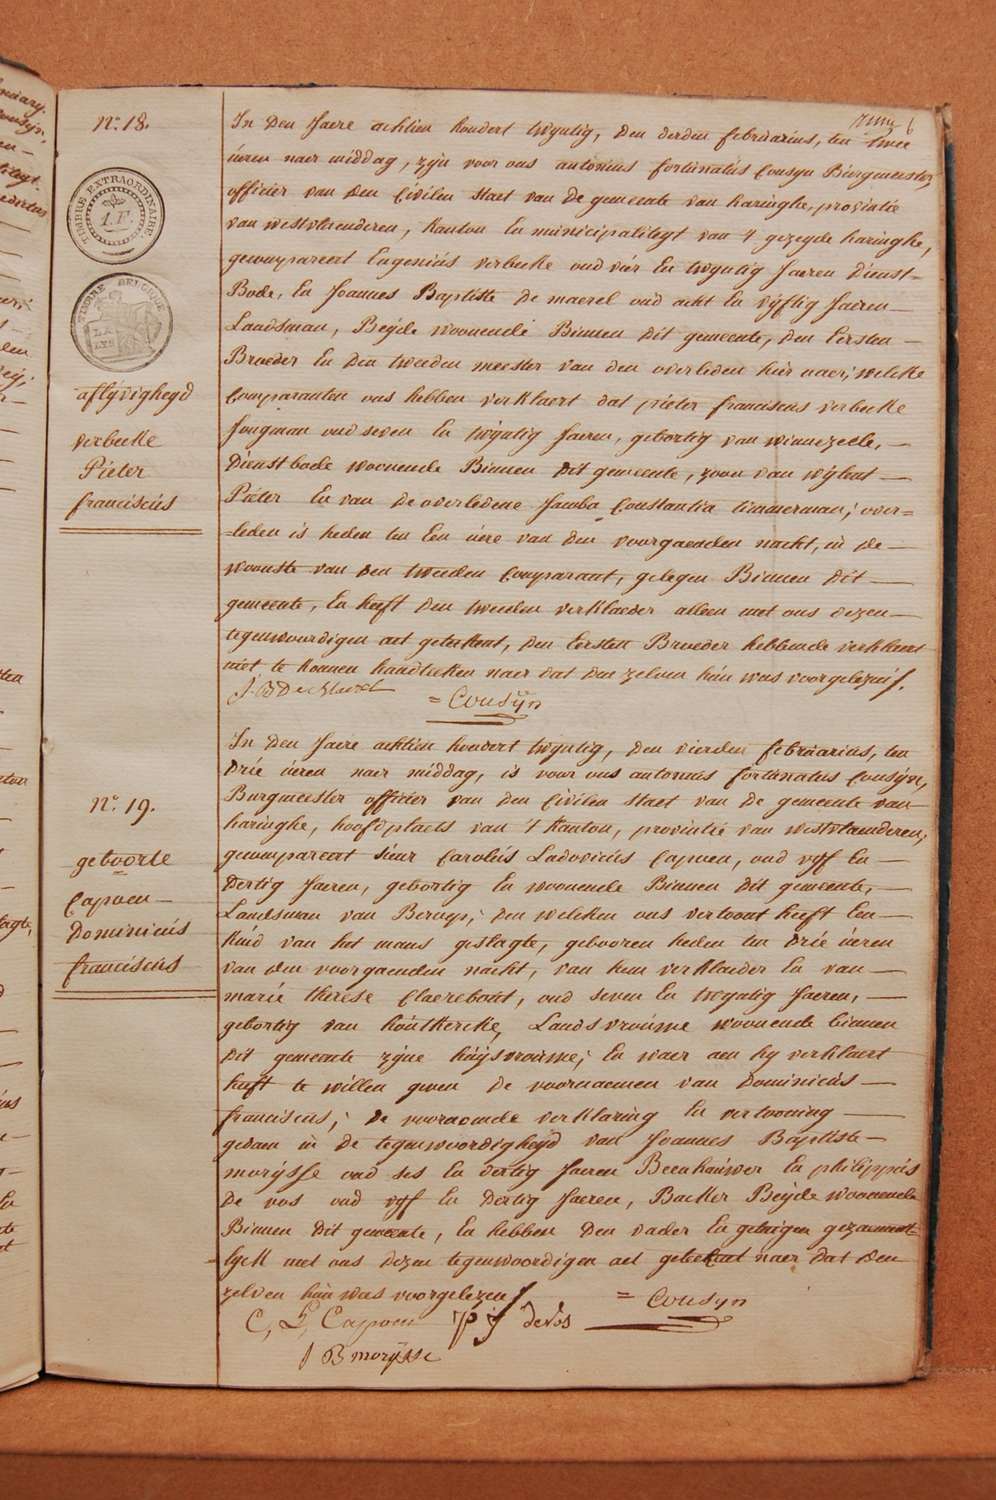 N.º 18.
TIMBRE EXTRAORDINAIRE.
1. F.
TIMBRE
LA
LYS
aflijvigheyd
verbecke
Pieter
franciscus
6
In den Jaere achtien hondert twijntig, den derden februarius, ten twee
ueren naer middag, zyn voor ons antonius fortunatus Cousyn Burgmeester
officier van den Civilen staet van de gemeente van haringhe, provintie
van westvlaenderen, kanton En municipaliteyt van 't gezeyde haringhe,
gecompareert Eugenius verbecke oud vier En twijntig Jaeren dienst-
Bode, En Joannes Baptiste de maerel oud acht En vyftig Jaeren
Landsman, Beyde woonende Binnen dit gemeente, den Eersten
Broeder En den tweeden meester van den overleden hier naer, welcke
Comparanten ons hebben verklaert dat pieter franciscus verbecke
Jongman oud seven En twijntig Jaeren, gebortig van winnezeele,
dienstbode woonende Binnen dit gemeente, zoon van wylent
Pieter En van de overledene Jacoba Constantia timmerman; over=
=leden is heden ten Een uere van den voorgaenden nacht, in de
woonste van den tweeden Comparant, gelegen Binnen dit
gemeente, En heeft den tweeden verklaerder alleen met ons dezen
tegenwoordigen act geteekent, den Eersten Broeder hebbende verklaert
niet te konnen handteeken naer dat den zelven hun was voorgelezen.
J. B De Maerel
= Cousyn
N.º 19.
geboorte
Capoen
Dominicus
franciscus
In den Jaere achtien hondert twijntig, den vierden februarius, ten
drie ueren naer middag, is voor ons antonius fortunatus Cousyn,
Burgmeester officier van den Civilen staet van de gemeente van
haringhe, hoofdplaets van 't kanton, provintie van westvlaenderen,
gecompareert sieur Carolus Ludovicus Capoen, oud vyf En
dertig Jaeren, gebortig En woonende Binnen dit gemeente,
Landsman van Beroep; den welcken ons vertoont heeft Een
kind van het mans geslagte, gebooren heden ten drie ueren
van den voorgaenden nacht, van hem verklaerder En van
marie therese Claerebout, oud seven En twijntig Jaeren,
gebortig van houtkercke, Landsvrouwe woonende binnen
dit gemeente zyne huysvrouwe; En waer aen hy verklaert
heeft te willen geven de voornaemen van Dominicus
franciscus; de voornoemde verklaring En vertooning
gedaen in de tegenwoordigheyd van Joannes Baptiste
morysse oud ses En dertig Jaeren Beenhouwer En philippus
de vos oud vyf En dertig Jaeren, Backer Beyde woonende
Binnen dit gemeente, En hebben den vader En getuigen gezaement
lyck met ons dezen tegenwoordigen act geteekent naer dat den
zelven hun was voorgelezen
= Cousyn
C, L, Capoen
deVos
J B morysse